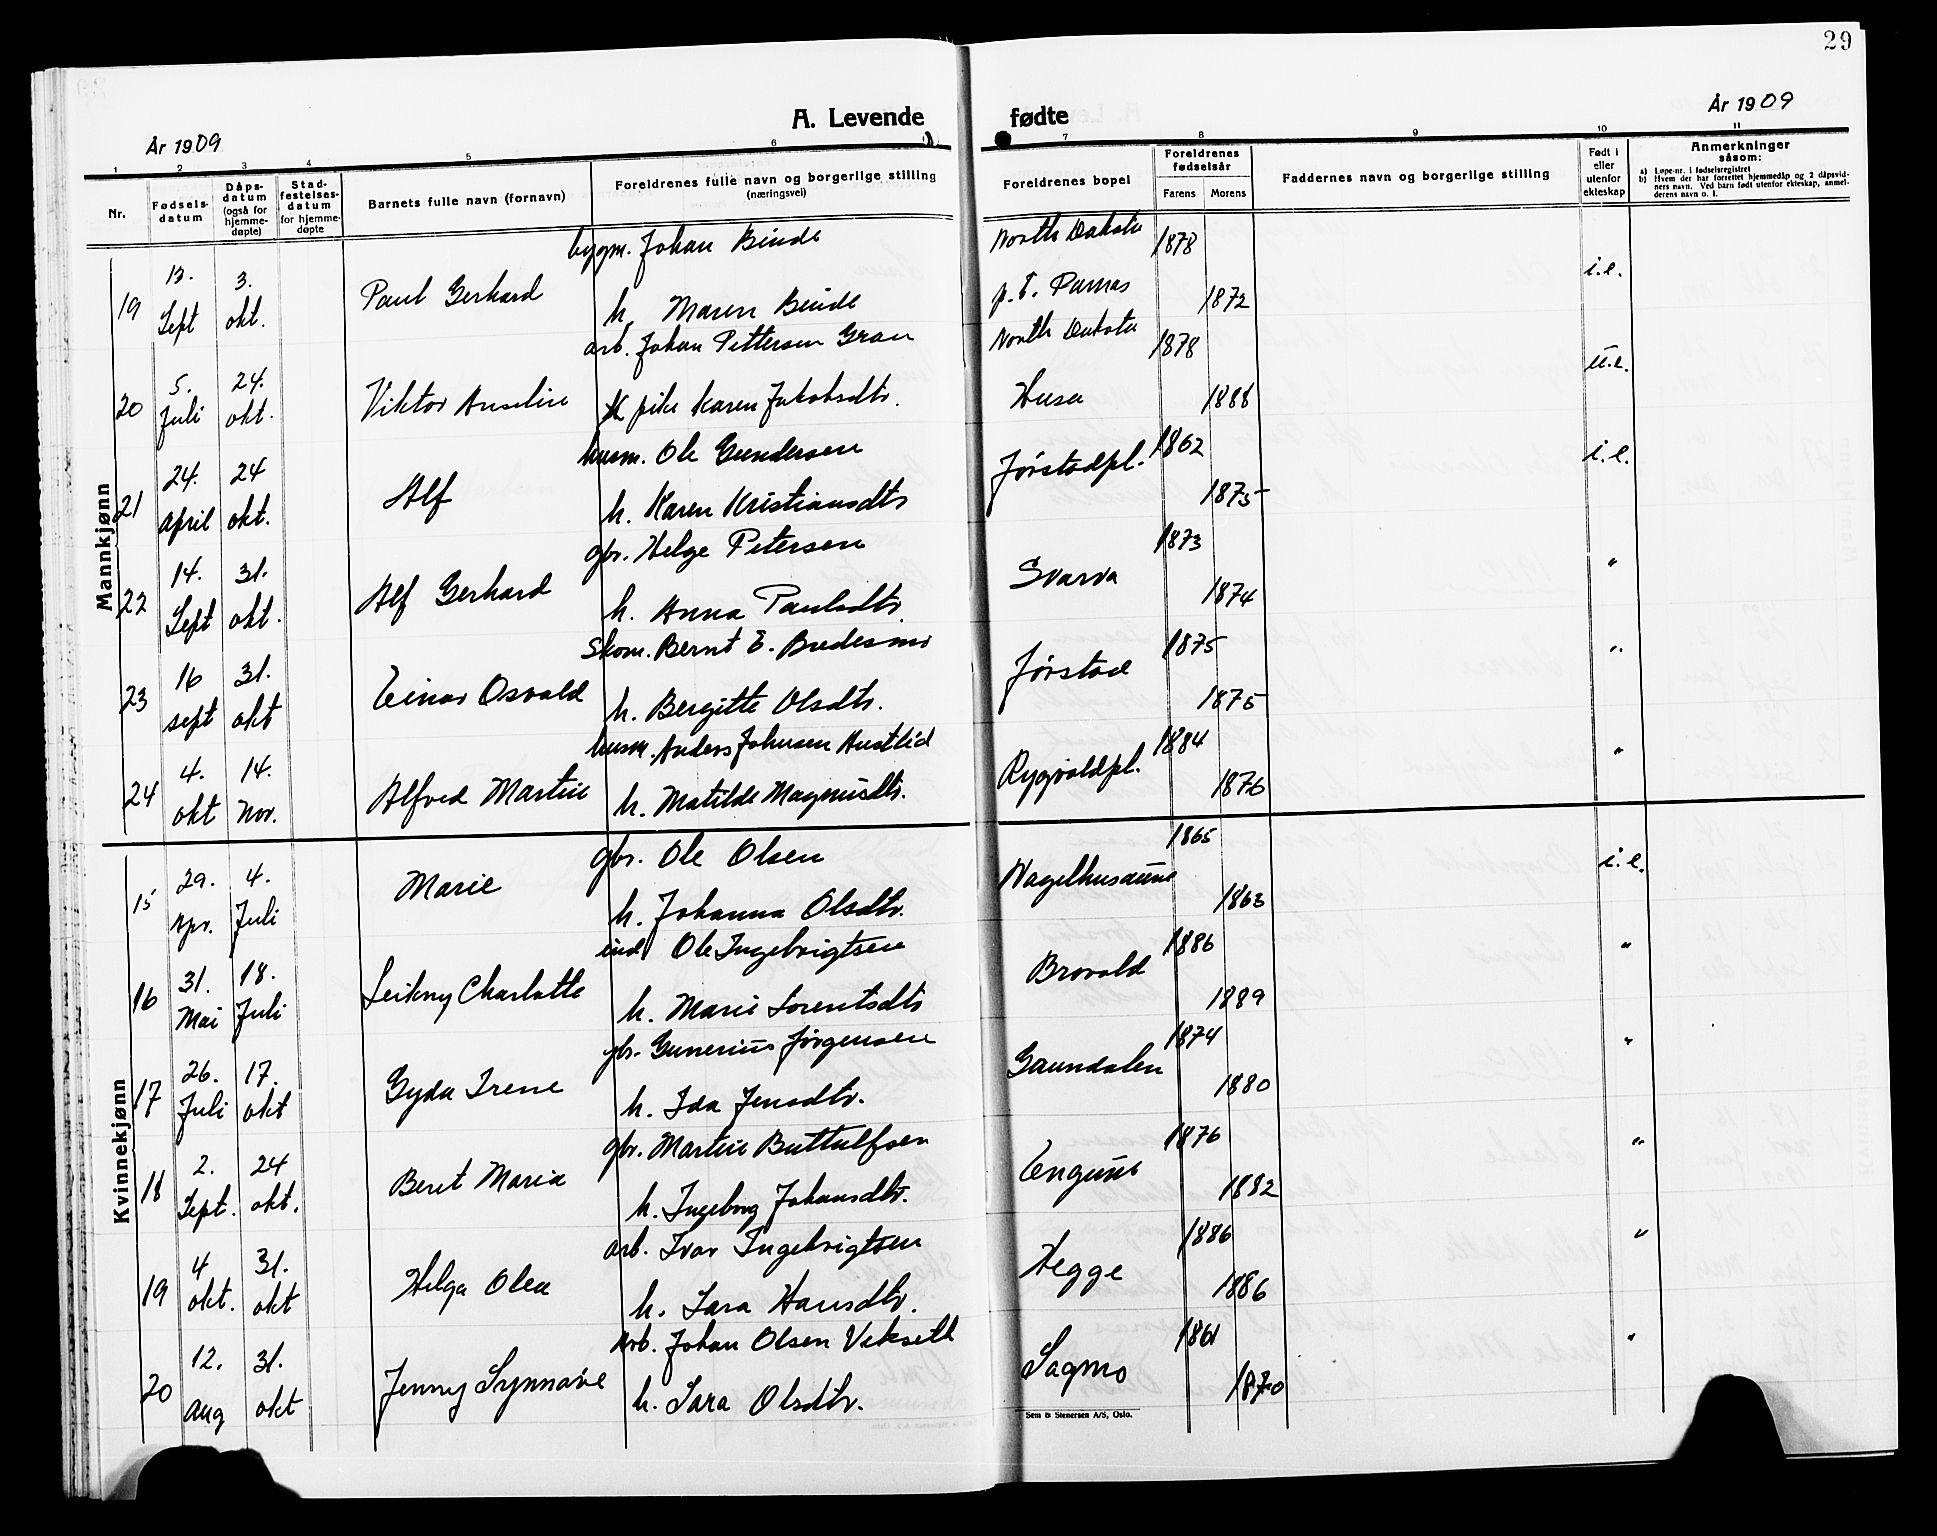 29
År 1909
A. Levende fødte
År 1909
1 2 3 4 5 6 7 8 9 10 11
Nr.
Fødsels-datum
Dåps-datum (også for hjemme-døpte)
Stad-festelses-datum for hjemme-døpte
Barnets fulle navn (fornavn)
Foreldrenes fulle navn og borgerlige stilling (næringsvei)
Foreldrenes bopel
Foreldrenes fødselsår
Farens Morens
Faddernes navn og borgerlige stilling
Født i eller utenfor ekteskap
Anmerkninger såsom:
a) Løpe-nr. i fødselsregistret
b) Hvem der har forrettet hjemmedåp og 2 dåpsvid-ners navn. Ved barn født utenfor ekteskap, anmel-derens navn o. l.
Mannkjønn
bygm. Johan Binde North Dakota 1878
19 13. Sept 3. okt. Paul Gerhard h. Maren Binde p.t. Parnas 1872 i.e.
arb. Johan Pettersen Gran North Dakota 1878
20 5. Juli 24. okt. Viktor Anselius pike Karen Jakobsdtr. Husa 1888 u.e.
husm. Ole Gundersen Jørstadpl. 1862
21 24. april 24 okt. Alf h. Karen Kristiansdtr 1875 i.e.
gbr. Helge Petersen Svarva 1873
22 14. Sept 31. okt. Alf Gerhard h. Anna Paulsdtr. 1874 "
Skom. Bernt E. Bredesmo Jørstad 1875
23 16 sept 31. okt Einar Osvald h. Bergitte Olsdtr. 1875 "
husm. Anders Johnsen Austlid Rygvoldpl. 1884
24 4. okt 14. Nov. Alfred Martin h. Matilde Magnusdtr. 1876 "
Kvinnekjønn
gbr. Ole Olsen Nagelhusaune 1865
15 29. Apr. 4. Juli Marie h. Johanna Olsdtr. 1863 i.e.
ind Ole Ingebrigtsen Brovold 1886
16 31. Mai 18. Juli Leikny Charlotte h. Marie Lorentsdtr 1889 "
gbr. Gunerius Jørgensen Gaundalen 1874
17 26. Juli 17. okt Gyda Irene h. Ida Jensdtr. 1880 "
gbr. Martin Buttulfsen 1876
18 2. Sept. 24 okt. Beret Maria h. Ingeborg Johansdtr. 1882 "
arb. Ivar Ingebrigtsen Hegge 1886
19 4 okt. 31. okt Helga Olea h. Sara Hansdtr. 1886 "
Arb. Johan Olsen Vekseth Sagmo 1861
20 12. aug 31. okt Jenny Synnøve h. Sara Olsdtr. 1870 "
Sem & Stenersen A/S, Oslo.